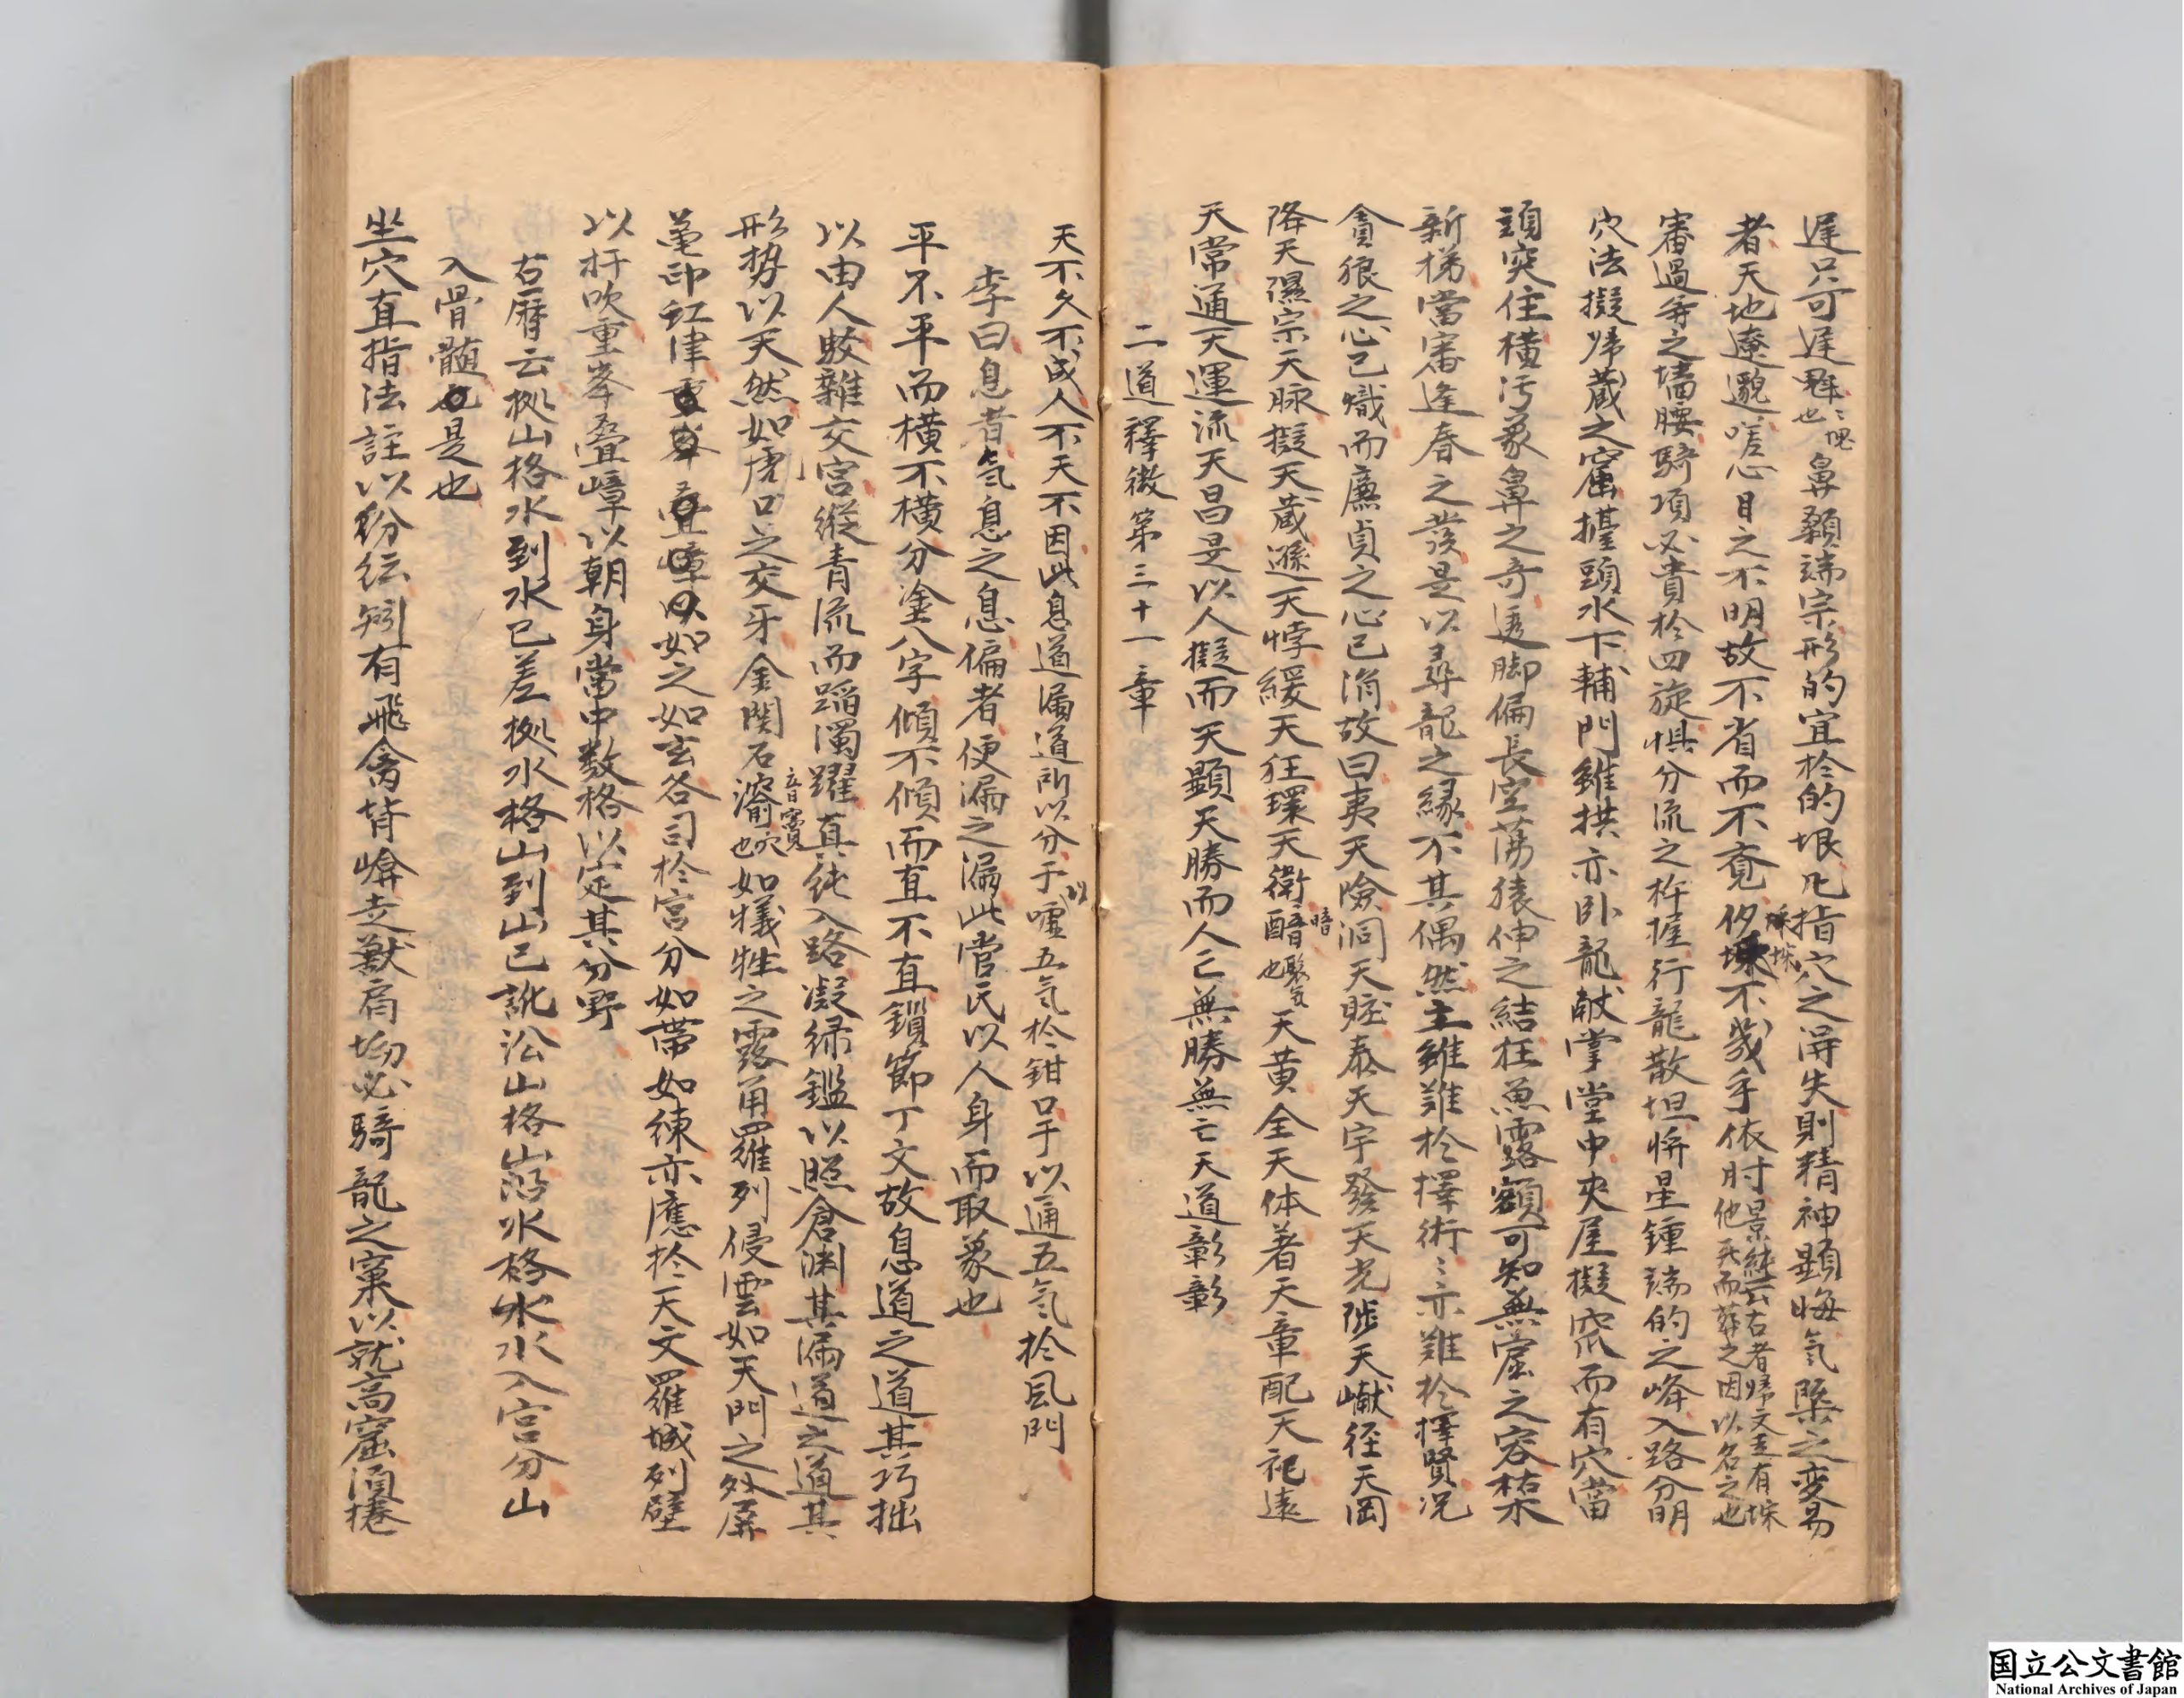 遅只可遅鼻顙端宗形的宜於的垠凡指穴之得失則精神顕晦氣槩之変易
者天地遼邈嗟心目之不明故不省而不覔不成手依肘
審過脊之墻腰騎項必貴於四旋惧分流之杵握行龍散坦將星鍾端的之峰入路分明
穴法擬帰蔵之窟擡頭水下輔門雖拱亦卧龍献掌堂中夾屋擬窊而有穴當
頭突住横污象鼻之奇透脚偏長空蕩猿伸之結在魚露額可知無窟之容枯木
新梯當審逢春之發是以尋龍之縁不其偶然主雖難於擇術〻亦難於擇賢况
貪狼之心已熾而廉貞之心已消故曰夷天險洞天眍泰天宇發天光陟天巘径天岡
降天隰宗天脉擬天蔵遜天悖緩天狂環天衛天黄全天体着天章配天祀遠
天常通天運流天昌是以人擬而天顕天勝而人亡無勝無亡天道彰彰
二道釋微第三十一章
天不久不成人不天不因此息道漏道所以分于噓五氣於鉗口乎以通五氣於風門
李曰息者氣息之息偏者便漏之漏此嘗氏以人身而取象也
平不平而横不横分塗八字傾不傾而直不直鎖節丁文故息道之道其巧拙
以由人駁雜交宮縦青流而蹈濁躍真純入路凝緑鑑以照倉渊其漏道之道其
形势以天然如虎口之交牙金関石音竇穴也如犠牲之露角羅列侵雲如天門之外屏
亀印紅律如之如玄各司於宮分如帶如練亦應於天文羅城列壁
以杆吹重峯叠嶂以朝身當中数格以定其分野
古暦云拠山格水到水已差拠水格山到山已訛沿山格山沿水格水水入宮分山
入骨髄是也
坐穴直指法註以粉紜矧有飛禽背嶭走獣肩坳必騎龍之窠以就高窟湏捲
国立公文書館
National Archives of Japan